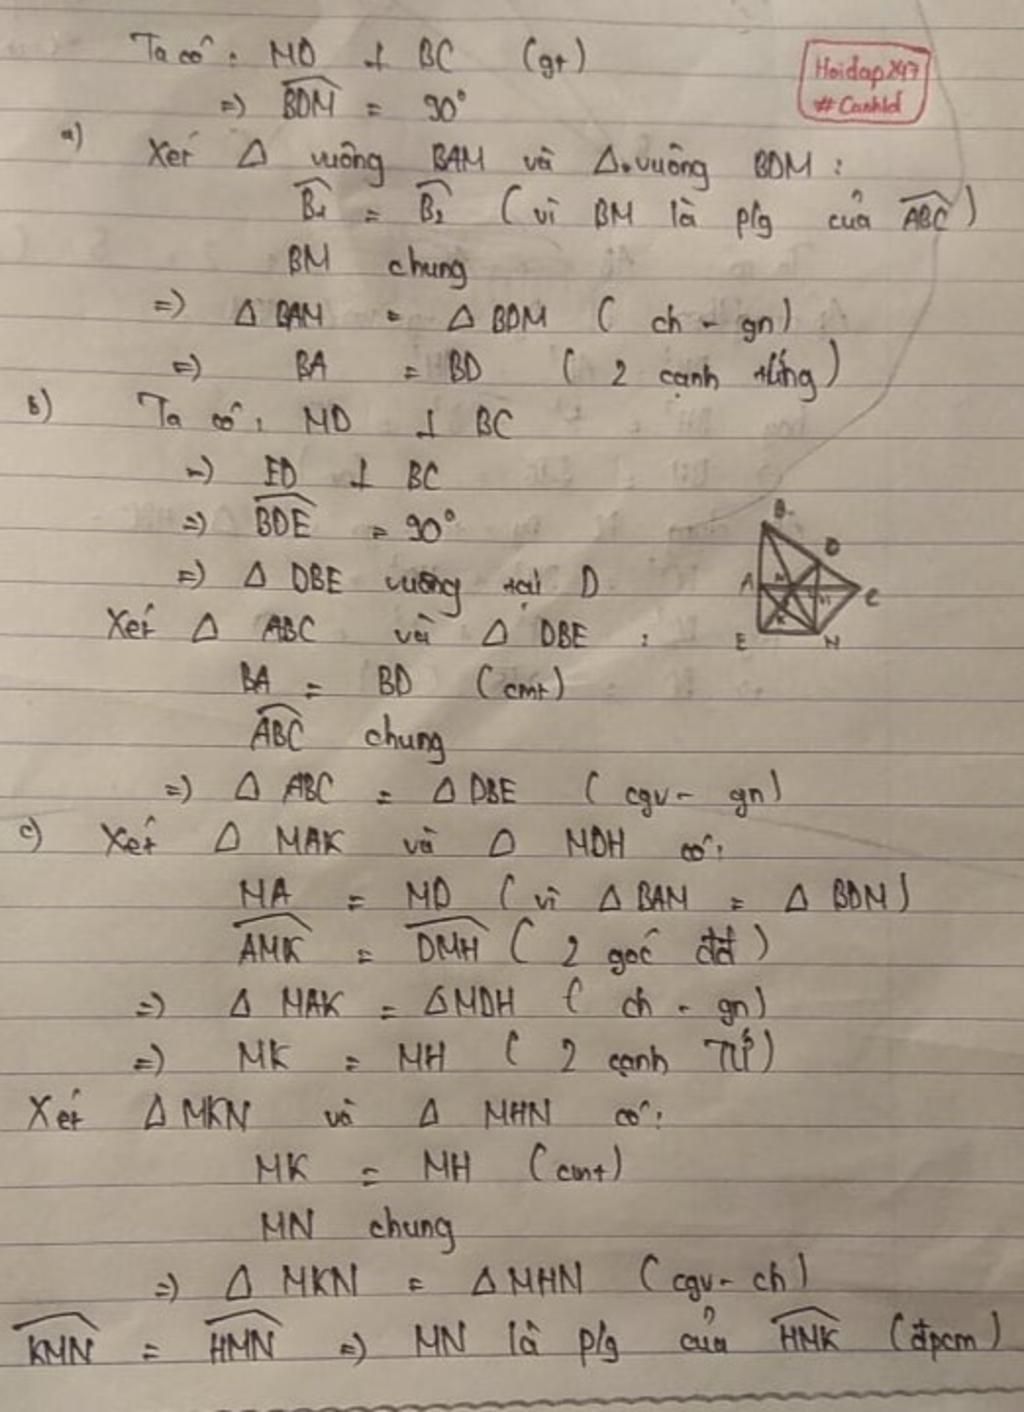 Ta có: MD ⊥ BC (gt)
Hoidap247
#Canhld
=) \widehat{BDM} = 90°
a) Xét Δ vuông BAM và Δ vuông BDM:
\widehat{B₁} = \widehat{B₂} (vì BM là p/g của \widehat{ABC})
BM chung
=) Δ BAM = Δ BDM (ch - gn)
=) BA = BD (2 cạnh tứng)
b) Ta có: MD ⊥ BC
=) ED ⊥ BC
=) \widehat{BDE} = 90°
=) Δ DBE vuông tại D
Xét Δ ABC và Δ DBE:
BA = BD (cmt)
\widehat{ABC} chung
=) Δ ABC = Δ DBE (cgv - gn)
c) Xét Δ MAK và Δ MDH có:
MA = MD (vì Δ BAM = Δ BDM)
\widehat{AMK} = \widehat{DMH} (2 góc đđ)
=) Δ MAK = Δ MDH (ch - gn)
=) MK = MH (2 cạnh TƯ)
Xét Δ MKN và Δ MHN có:
MK = MH (cmt)
MN chung
=) Δ MKN = Δ MHN (cgv - ch)
\widehat{KMN} = \widehat{HMN} =) MN là p/g của \widehat{HMK} (đpcm)
B
D
A
C
E
N